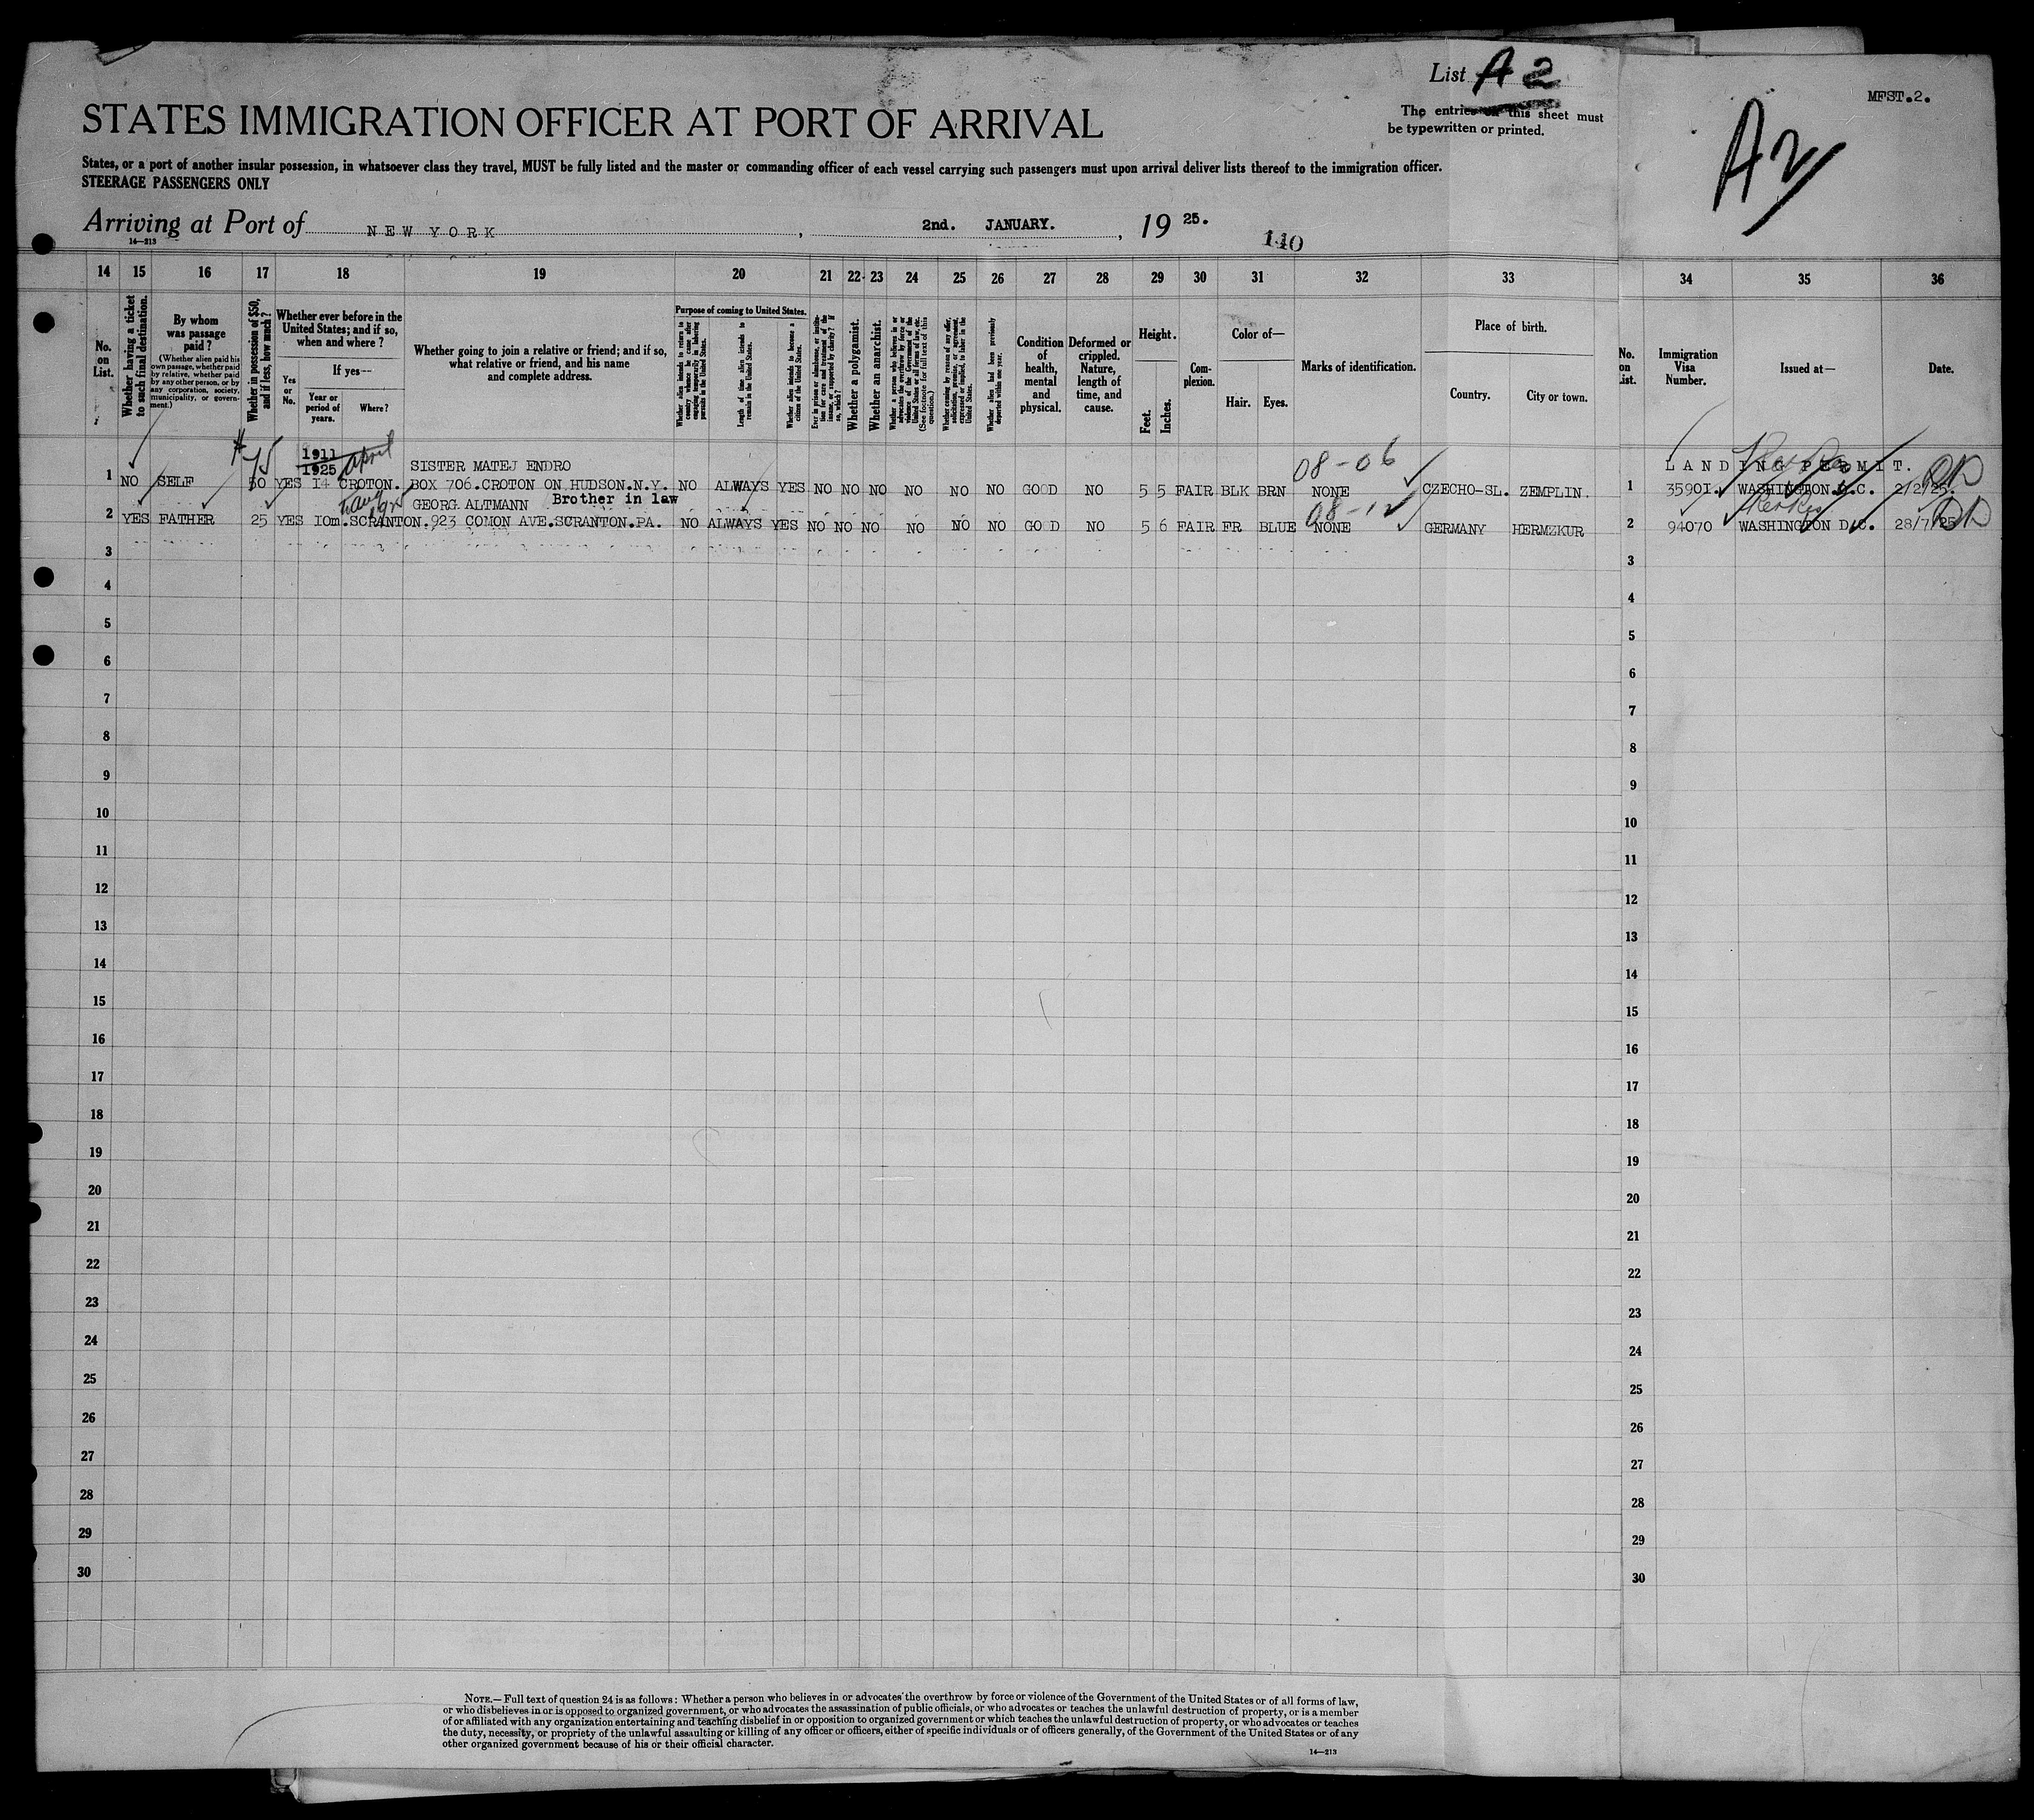 List A 2
MFST.2.
The entries on this sheet must
be typewritten or printed.
A2
STATES IMMIGRATION OFFICER AT PORT OF ARRIVAL
States, or a port of another insular possession, in whatsoever class they travel, MUST be fully listed and the master or commanding officer of each vessel carrying such passengers must upon arrival deliver lists thereof to the immigration officer.
STEERAGE PASSENGERS ONLY
Arriving at Port of NEW YORK, 2nd. JANUARY., 19 25.
14—213
140
14 15 16 17 18 19 20 21 22 23 24 25 26 27 28 29 30 31 32 33 34 35 36
No. on List.
Whether having a ticket to such final destination.
By whom was passage paid?
(Whether alien paid his own passage, whether paid by relative, whether paid by any other person, or by any corporation, society, municipality, or government.)
Whether in possession of $50, and if less, how much?
Whether ever before in the United States; and if so, when and where?
Yes or No.
If yes—
Year or period of years.
Where?
Whether going to join a relative or friend; and if so, what relative or friend, and his name and complete address.
Purpose of coming to United States.
Whether alien intends to return to country whence he came after engaging temporarily in laboring pursuits in the United States.
Length of time alien intends to remain in the United States.
Whether alien intends to become a citizen of the United States.
Ever in prison or almshouse, or institution for care and treatment of the insane, or supported by charity? If so, which?
Whether a polygamist.
Whether an anarchist.
Whether a person who believes in or advocates the overthrow by force or violence of the Government of the United States or all forms of law, etc. (See footnote for full text of this question.)
Whether coming by reason of any offer, solicitation, promise, or agreement, expressed or implied, to labor in the United States.
Whether alien had been previously deported within one year.
Condition of health, mental and physical.
Deformed or crippled. Nature, length of time, and cause.
Height.
Feet. Inches.
Complexion.
Color of—
Hair. Eyes.
Marks of identification.
Place of birth.
Country. City or town.
No. on List.
Immigration Visa Number.
Issued at—
Date.
$ 75 1911 April SISTER MATEJ ENDRO 08-06 LANDING PERMIT.
1925
1 NO SELF 50 YES I4 CROTON. BOX 706.CROTON ON HUDSON.N.Y. NO ALWAYS YES NO NO NO NO NO NO GOOD NO 5 5 FAIR BLK BRN NONE CZECHO-SL. ZEMPLIN. 1 35901. WASHINGTON.D.C. 2/2/25.
GEORG ALTMANN Brother in law 08-12
2 YES FATHER 25 YES IOm.SCRANTON.923 COMON AVE.SCRANTON.PA. NO ALWAYS YES NO NO NO NO NO NO GOOD NO 5 6 FAIR FR BLUE NONE GERMANY HERMZKUR 2 94070 WASHINGTON D.C. 28/7/25
3 3
4 4
5 5
6 6
7 7
8 8
9 9
10 10
11 11
12 12
13 13
14 14
15 15
16 16
17 17
18 18
19 19
20 20
21 21
22 22
23 23
24 24
25 25
26 26
27 27
28 28
29 29
30 30
NOTE.—Full text of question 24 is as follows: Whether a person who believes in or advocates the overthrow by force or violence of the Government of the United States or of all forms of law,
or who disbelieves in or is opposed to organized government, or who advocates the assassination of public officials, or who advocates or teaches the unlawful destruction of property, or is a member
of or affiliated with any organization entertaining and teaching disbelief in or opposition to organized government or which teaches the unlawful destruction of property, or who advocates or teaches
the duty, necessity, or propriety of the unlawful assaulting or killing of any officer or officers, either of specific individuals or of officers generally, of the Government of the United States or of any
other organized government because of his or their official character.
14—213